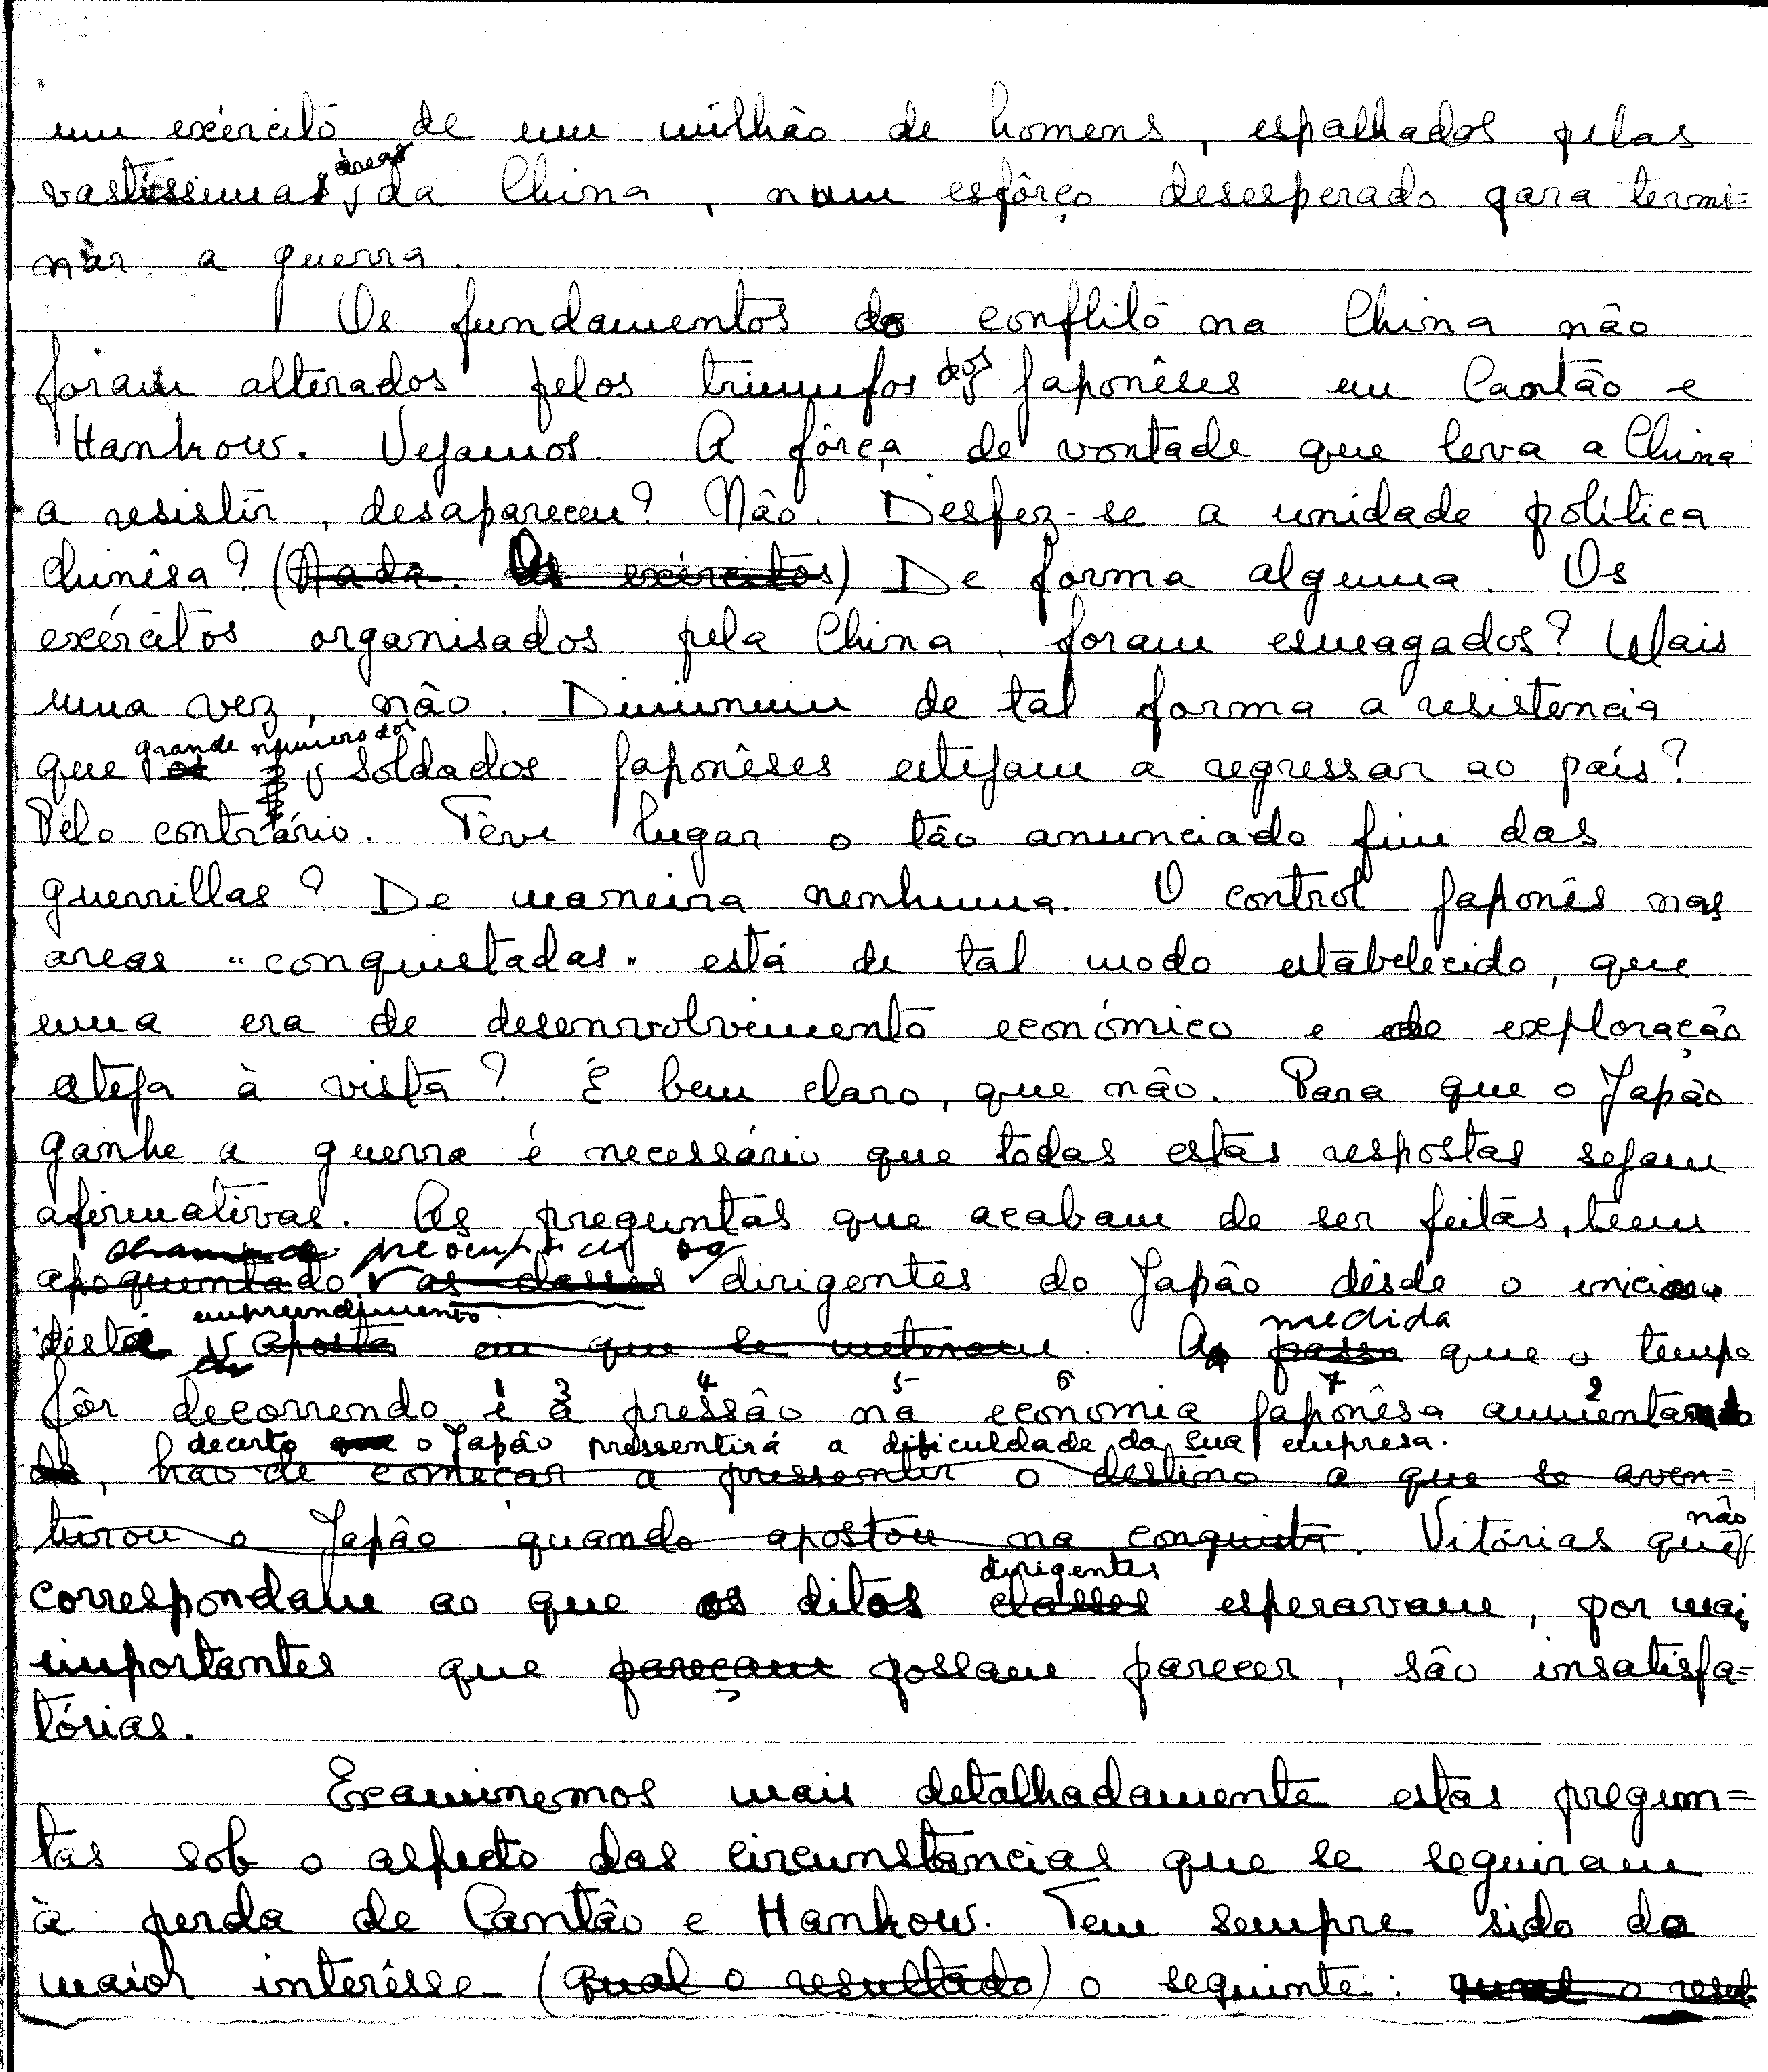 um exército de um milhão de homens, espalhados pelas
vastissimas áreas da China, num esfôrço desesperado para termi=
nar a guerra.
Os fundamentos do conflito na China não
foram alterados pelos triunfos dos Japonêses em Cantão e
Hankow. Vejamos. A fôrça de vontade que leva a China
a resistir, desapareceu? Não. Desfez-se a unidade política
chinêsa? (Nada. Os exércitos) De forma alguma. Os
exércitos organisados pela China, foram esmagados? Mais
uma vez, não. Diminuiu de tal forma a resistencia
grande número dos
que os soldados japonêses estejam a regressar ao país?
Pelo contrário. Teve lugar o tão anunciado fim das
guerrillas? De maneira nenhuma. O control japonês nas
areas "conquistadas" está de tal modo estabelecido, que
uma era de desenvolvimento económico e de exploração
esteja à vista? É bem claro, que não. Para que o Japão
ganhe a guerra é necessário que todas estas respostas sejam
afirmativas. As preguntas que acabam de ser feitas, teem
preocupado os
apoquentado as classes dirigentes do Japão dêsde o inicio
empreendimento. medida
dêste aposta em que se meteram. A passo que o tempo
1 3 4 5 6 7 2
fôr decorrendo e a pressão na economia japonêsa aumentando
decerto que o Japão pressentirá a dificuldade da sua empresa.
, hão de começar a pressentir o destino a que se aven=
turou o Japão quando apostou na conquista. Vitórias que não
dirigentes
correspondam ao que os ditos classes esperavam, por mais
importantes que pareçam possam parecer, são insatisfa=
tórias.
Examinemos mais detalhadamente estas pregun=
tas sob o aspecto das circunstancias que se seguiram
à perda de Cantão e Hankow. Tem sempre sido do
maior interêsse (qual o resultado) o seguinte: qual o resul